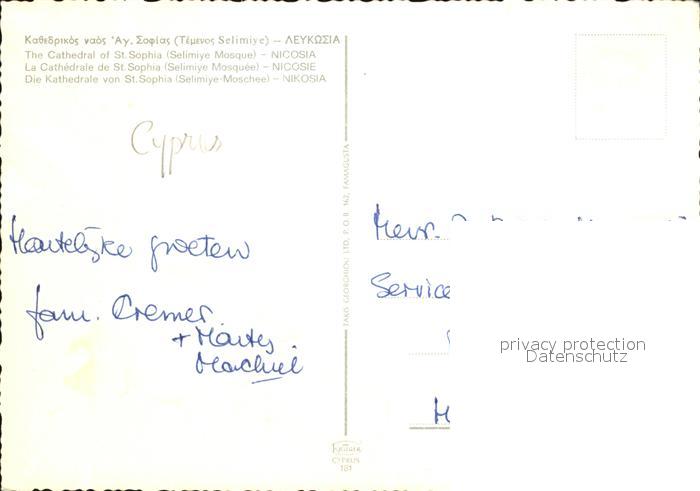 Καθεδρικός ναός 'Αγ. Σοφίας (Τέμενος Selimiye) – ΛΕΥΚΩΣΙΑ
The Cathedral of St. Sophia (Selimiye Mosque) – NICOSIA
La Cathédrale de St. Sophia (Selimiye Mosquée) – NICOSIE
Die Kathedrale von St. Sophia (Selimiye-Moschee) – NIKOSIA
Cyprus
Hartelijke groeten
fam. Cremer
+
Machiel
TAKO GEORGHIOU LTD, P.O.B. 162, FAMAGUSTA
CYPRUS
181
Mevr.
Service
privacy protection
Datenschutz
H